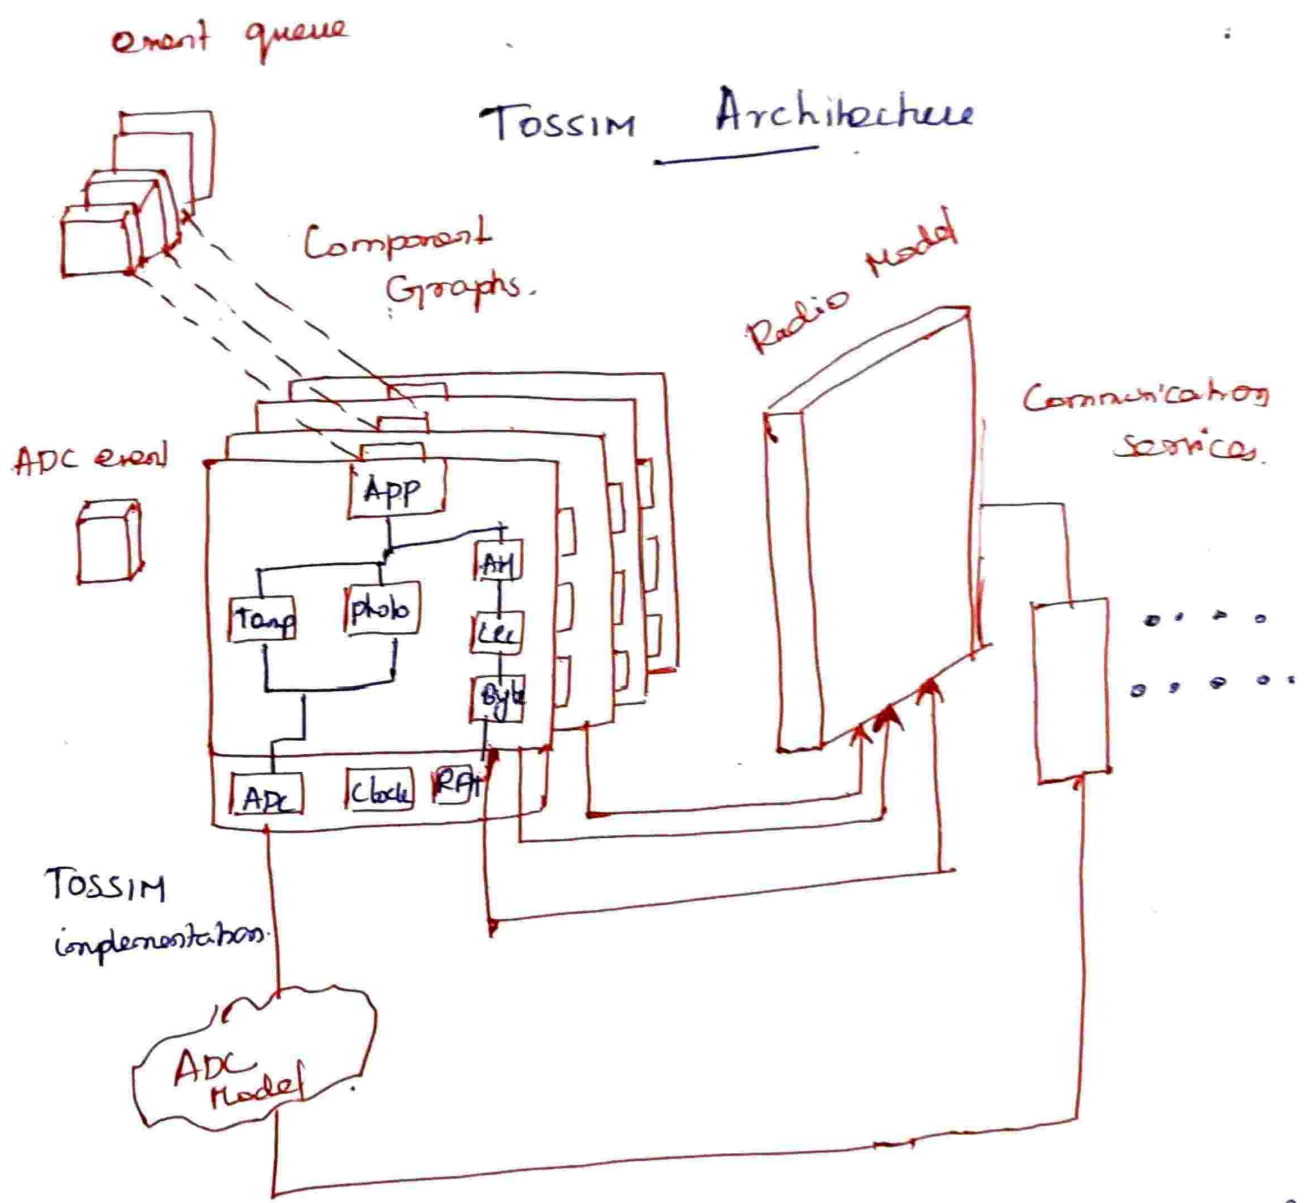 event queue
TOSSIM Architecture
Component
Graphs.
Radio Model
Communication
services.
ADC event
App
AM
Temp
photo
CRC
Byte
ADC
Clock
TOSSIM
implementation.
ADC
Model